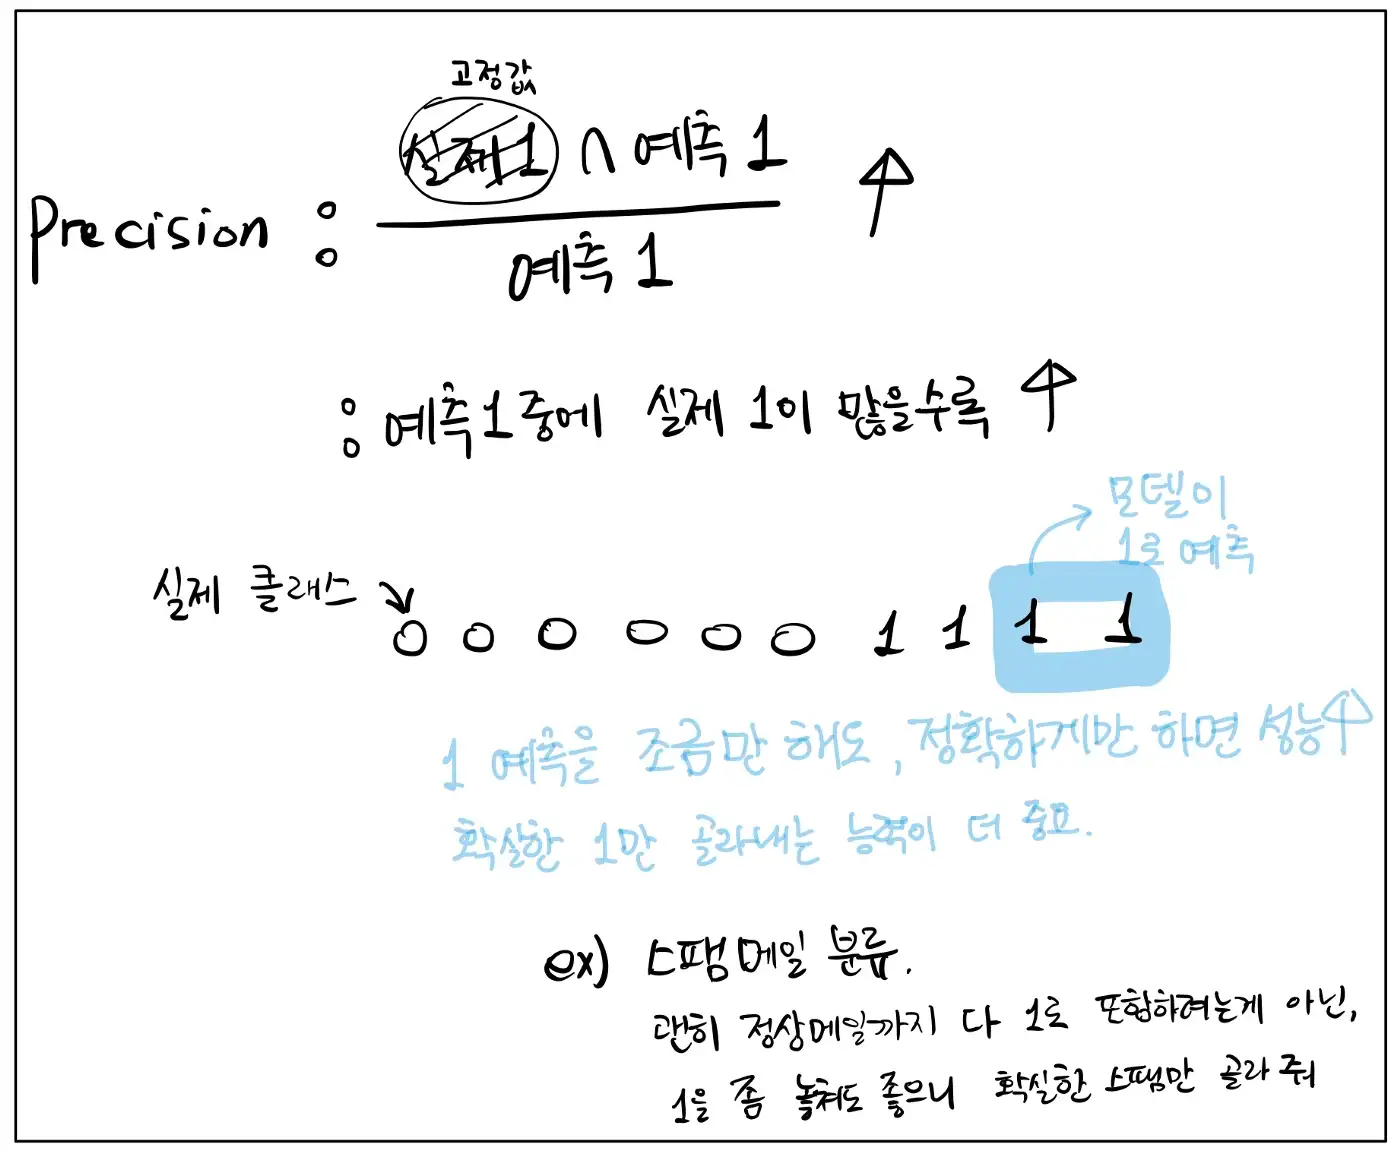 고정값
실제1 ∩ 예측 1
Precision : 예측 1 ↑
: 예측1중에 실제 1이 많을수록 ↑
모델이
1로 예측
실제 클래스
0 0 0 0 0 0 1 1 1 1
1 예측을 조금만 해도, 정확하게만 하면 성능↑
확실한 1만 골라내는 능력이 더 중요.
ex) 스팸메일 분류.
괜히 정상메일까지 다 1로 포함하려는게 아닌,
1을 좀 놓쳐도 좋으니 확실한 스팸만 골라줘